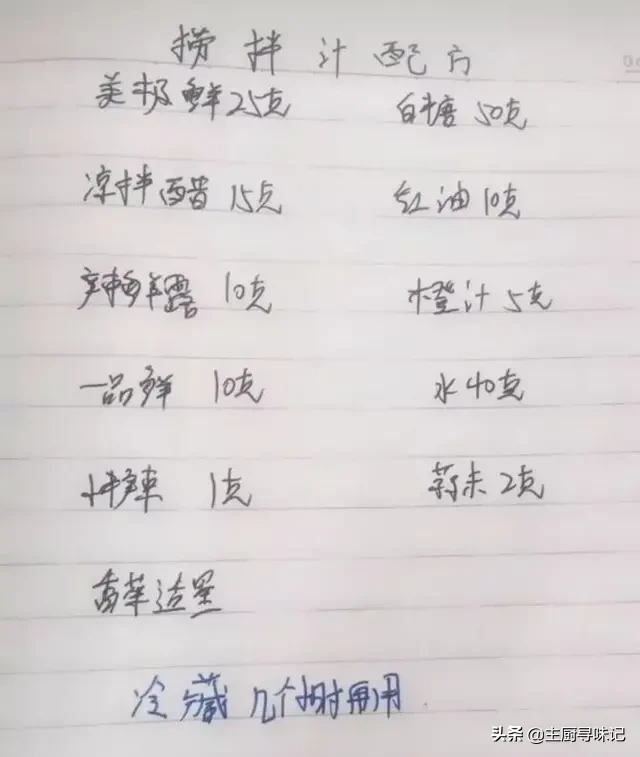 捞拌汁配方
美极鲜 25克 白糖 50克
凉拌醋 15克 红油 10克
辣鲜露 10克 橙汁 5克
一品鲜 10克 水 40克
1克 蒜末 2克
香菜适量
冷藏几个小时再用
头条 @主厨寻味记